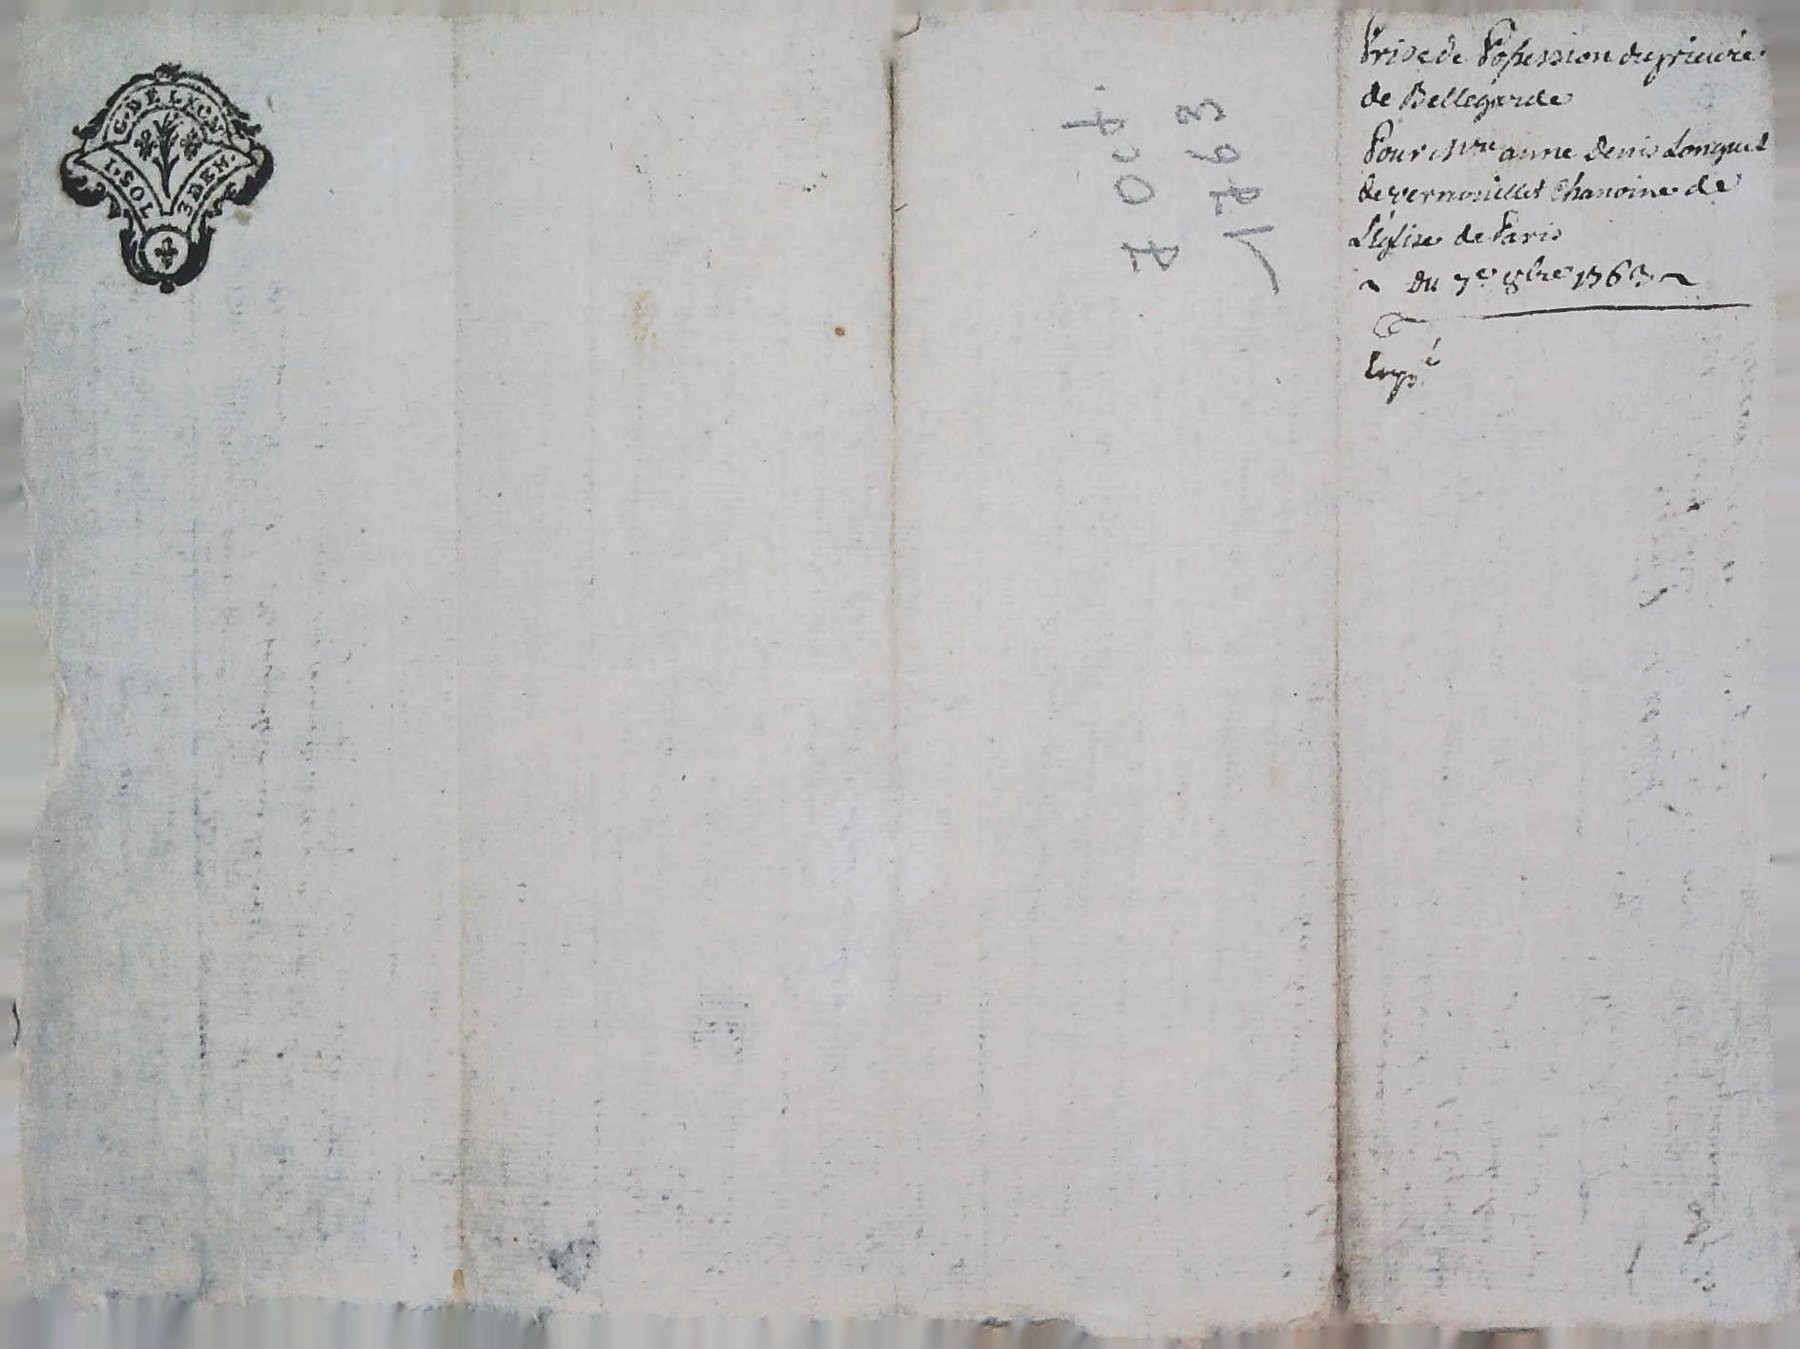 G. DE LYON
1. SOL 3 DEN.
7 Oct.
1763
Prise de Possession du prieuré
de Bellegarde
Pour Mre anne Denis Longuet
de vernouillet Chanoine de
L'Eglise de Paris
~ du 7e 8bre 1763 ~